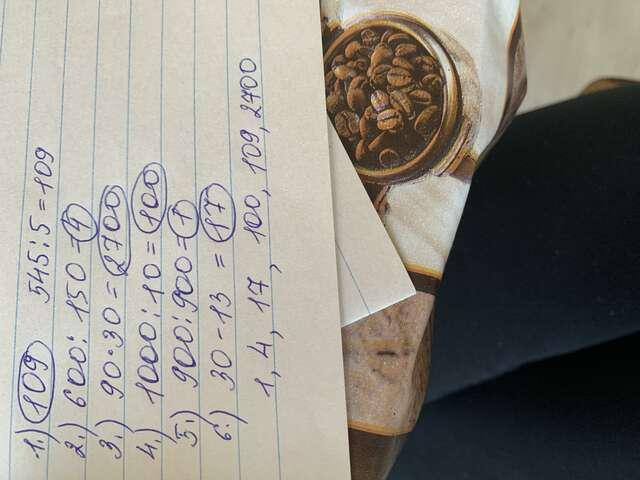 1.) 109 545:5=109
2.) 600:150=4
3.) 90·30=2700
4.) 1000:10=100
5.) 900:900=1
6.) 30-13=17
1, 4, 17, 100, 109, 2700